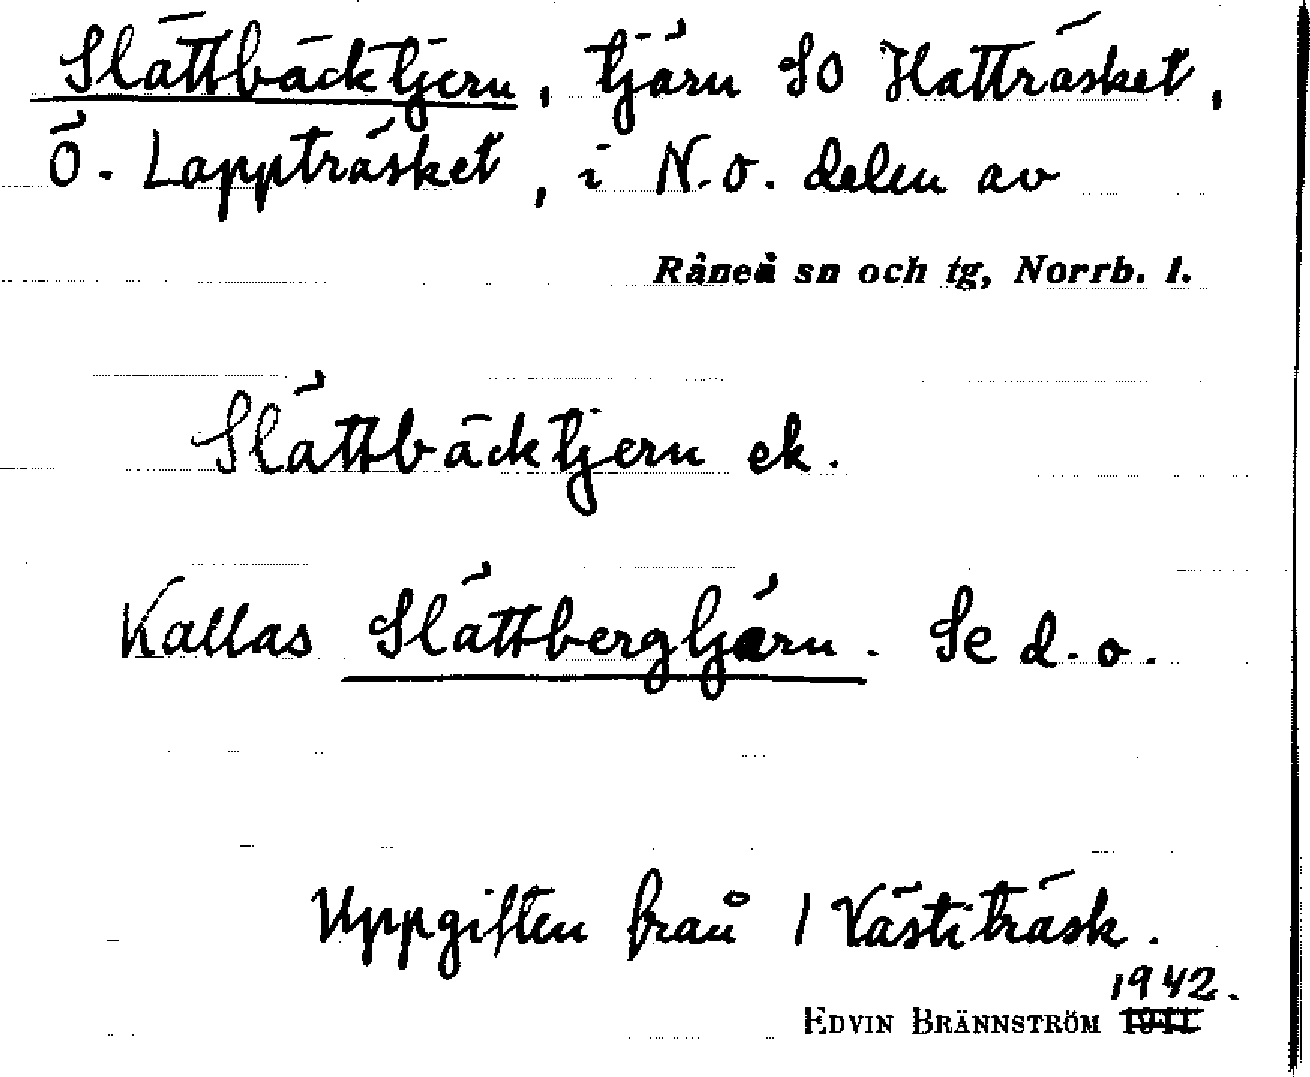 Slättbäcktjern, tjärn SO Hatträsket,
Ö. Lappträsket, i N.O. delen av
Råneå sn och tg, Norrb. l.
Slättbäcktjern ek.
Kallas Slättbergtjärn. Se d.o.
Uppgiften från 1 Västiträsk.
1942.
EDVIN BRÄNNSTRÖM 1941